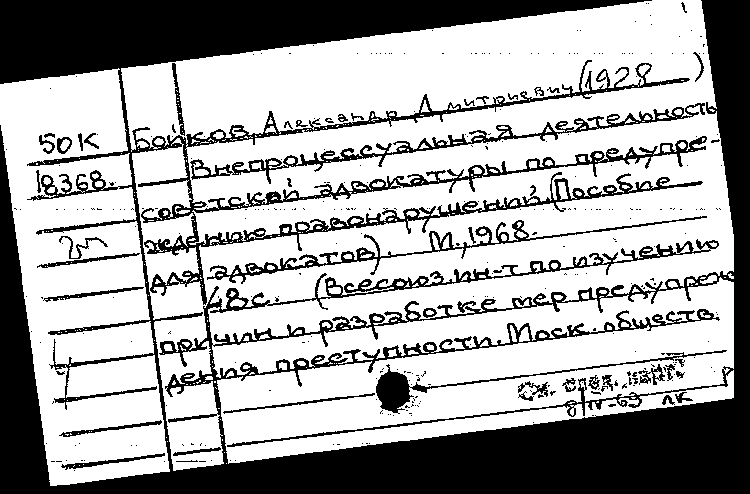 Бойков, Александр Дмитриевич (1928 )
50К
18368.
Внепроцессуальная деятельность
советской адвокатуры по предупре-
ждению правонарушений. (Пособие
для адвокатов). М., 1968.
48с. (Всесоюз. ин-т по изучению
причин и разработке мер предупреж
дения преступности. Моск. обществ.
См. след. карт.
8 IV-69 лк